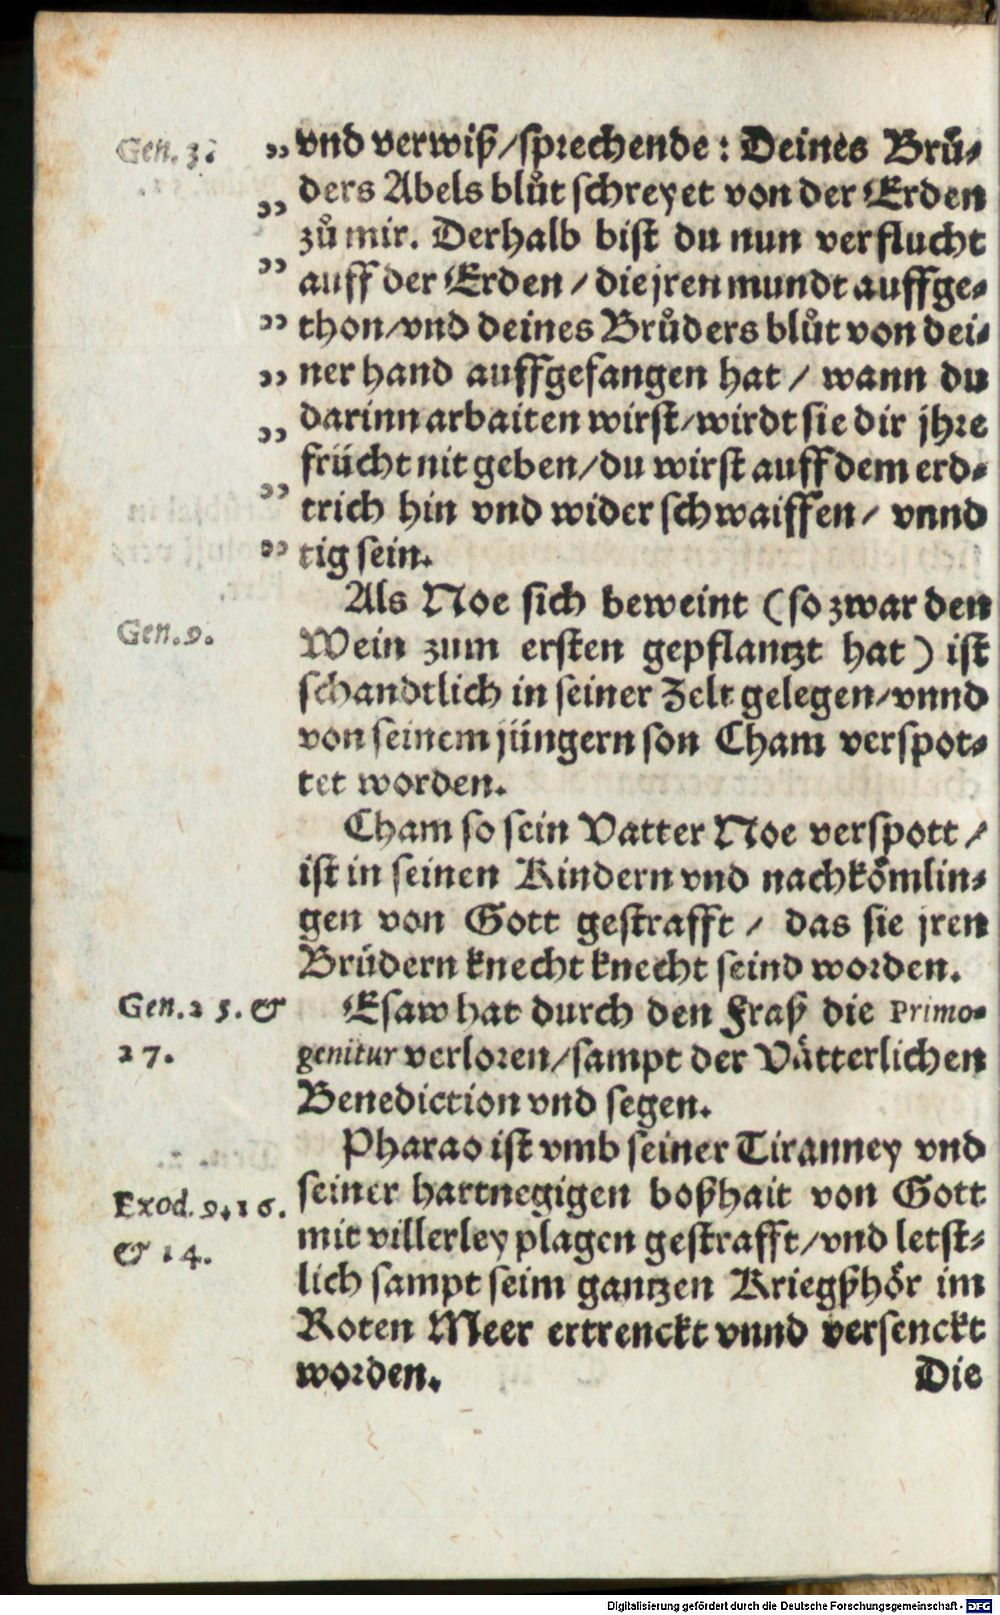 Gen. 3.
„ vnd verwiß/sprechende: Deines Brů-
„ ders Abels blůt schreyet von der Erden
zů mir. Derhalb bist du nun verflucht
„ auff der Erden / die jren mundt auffge-
„ thon/vnd deines Brůders blůt von dei-
„ ner hand auffgefangen hat / wann du
„ darinn arbaiten wirst/wirdt sie dir jhre
frücht nit geben/du wirst auff dem erd-
„ trich hin vnd wider schwaiffen/ vnnd
„ tig sein.
Als Noe sich beweint (so zwar den
Gen. 9.
Wein zum ersten gepflantzt hat) ist
schandtlich in seiner Zelt gelegen/vnnd
von seinem jüngern son Cham verspot-
tet worden.
Cham so sein Vatter Noe verspott /
ist in seinen Kindern vnd nachkömlin-
gen von Gott gestrafft / das sie jren
Brüdern knecht knecht seind worden.
Gen. 25. &
27.
Esaw hat durch den Fraß die Primo-
genitur verloren/sampt der Vätterlichen
Benediction vnd segen.
Pharao ist vmb seiner Tiranney vnd
Exod. 9. 16.
& 14.
seiner hartnegigen boßhait von Gott
mit villerley plagen gestrafft/vnd letst-
lich sampt seim gantzen Kriegßhör im
Roten Meer ertrenckt vnnd versenckt
worden.
Die
Digitalisierung gefördert durch die Deutsche Forschungsgemeinschaft - DFG